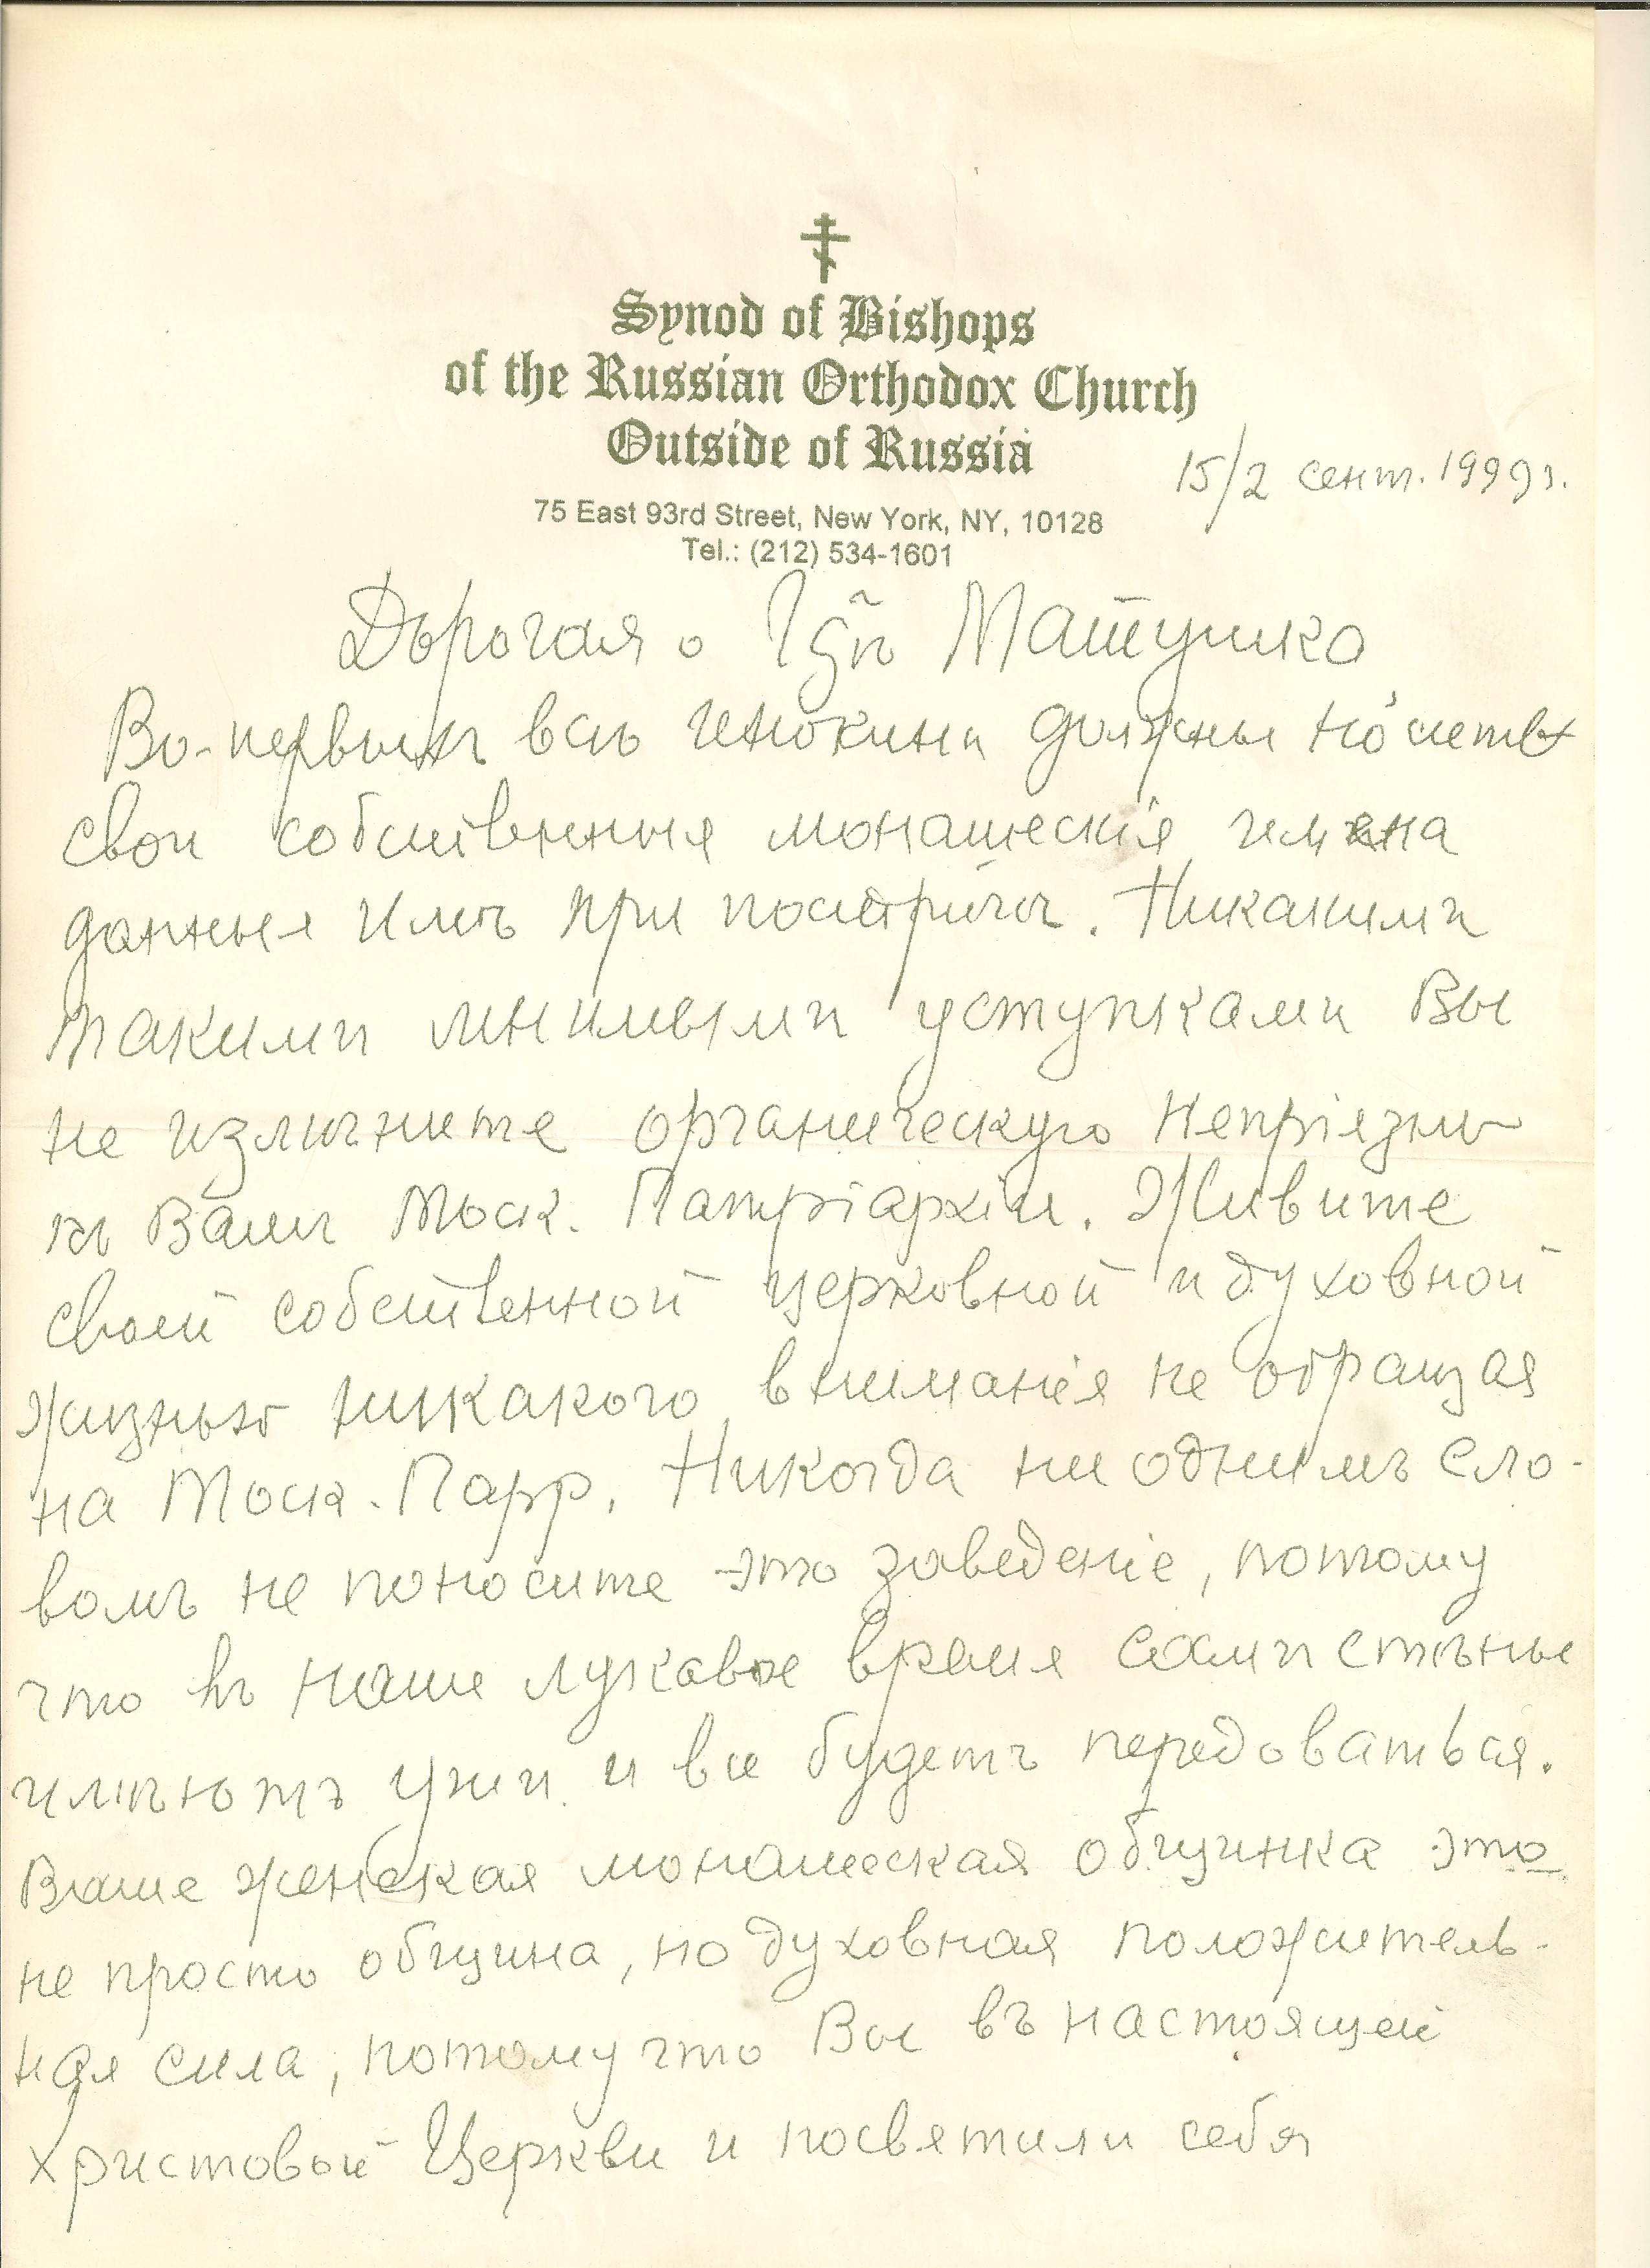 Synod of Bishops
of the Russian Orthodox Church
Outside of Russia
75 East 93rd Street, New York, NY, 10128
Tel.: (212) 534-1601
15/2 сент. 1999 г.
Дорогая о Матушка
Во-первыхъ всѣ инокини должны носить
свои собственныя монашескія имена
данныя имъ при постригѣ. Никакими
такими мнимыми уступками Вы
не излечите органическую непріязнь
къ Вамъ Моск. Патріархіи. Живите
своей собственной церковной и духовной
жизнью никакого вниманія не обращая
на Моск. Патр. Никогда ни однимъ сло-
вомъ не поносите это заведеніе, потому
что въ наше лукавое время сами стѣны
имѣютъ уши и все будетъ передоваться.
Ваше женская монашеская общинка это
не просто община, но духовная положитель-
ная сила, потому что Вы въ настоящей
Христовой Церкви и посвятили себя